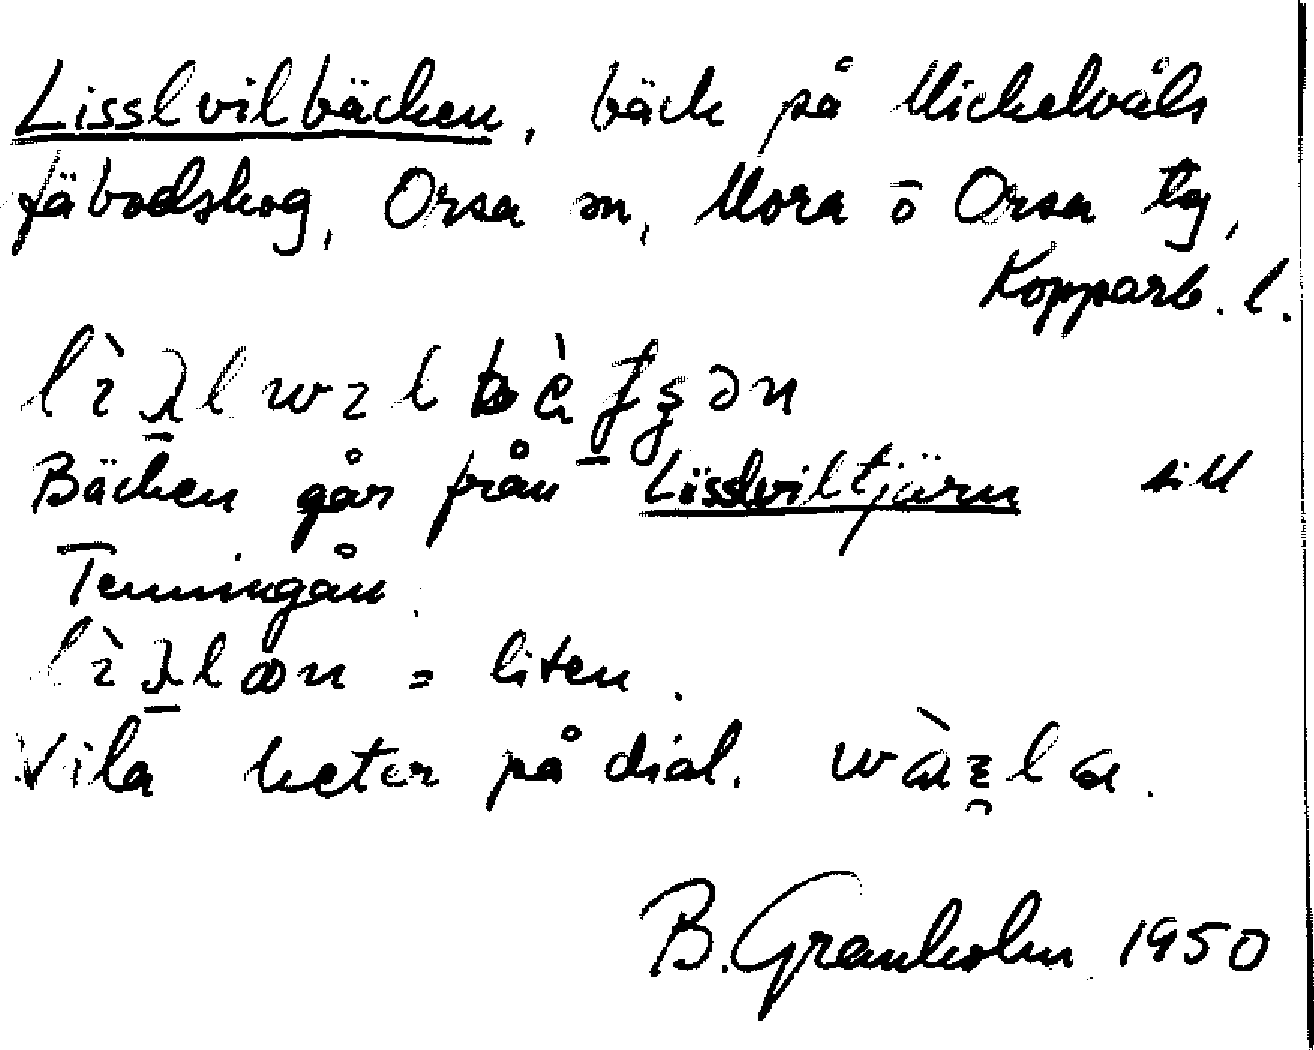 Lisslvilbäcken, bäck på Mickelvåls
fäbodskog, Orsa sn, Mora o Orsa tg,
Kopparb. l.
Bäcken går från Lisslviltjärn till
Tenningån.
= liten.
Vila heter på dial.
B. Granholm 1950